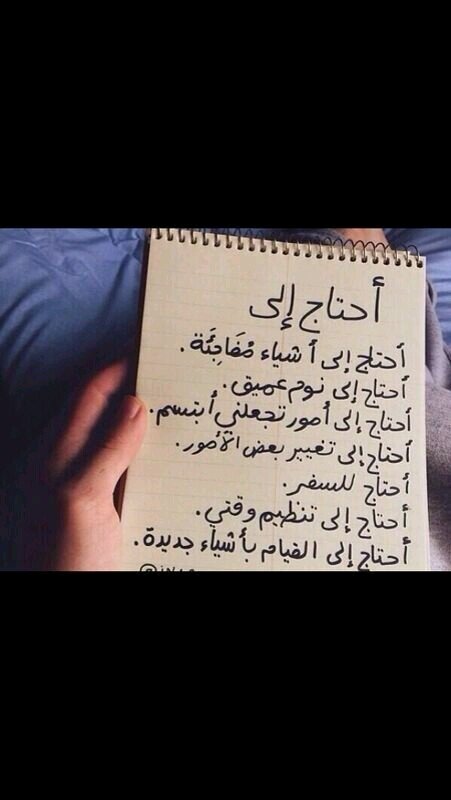 أحتاج إلى
أحتاج إلى أشياء مُفَاجِئَة.
أحتاج إلى نوم عميق.
أحتاج إلى أمور تجعلني أبتسم.
أحتاج إلى تغيير بعض الأمور.
أحتاج للسفر.
أحتاج إلى تنظيم وقتي.
أحتاج إلى القيام بأشياء جديدة.